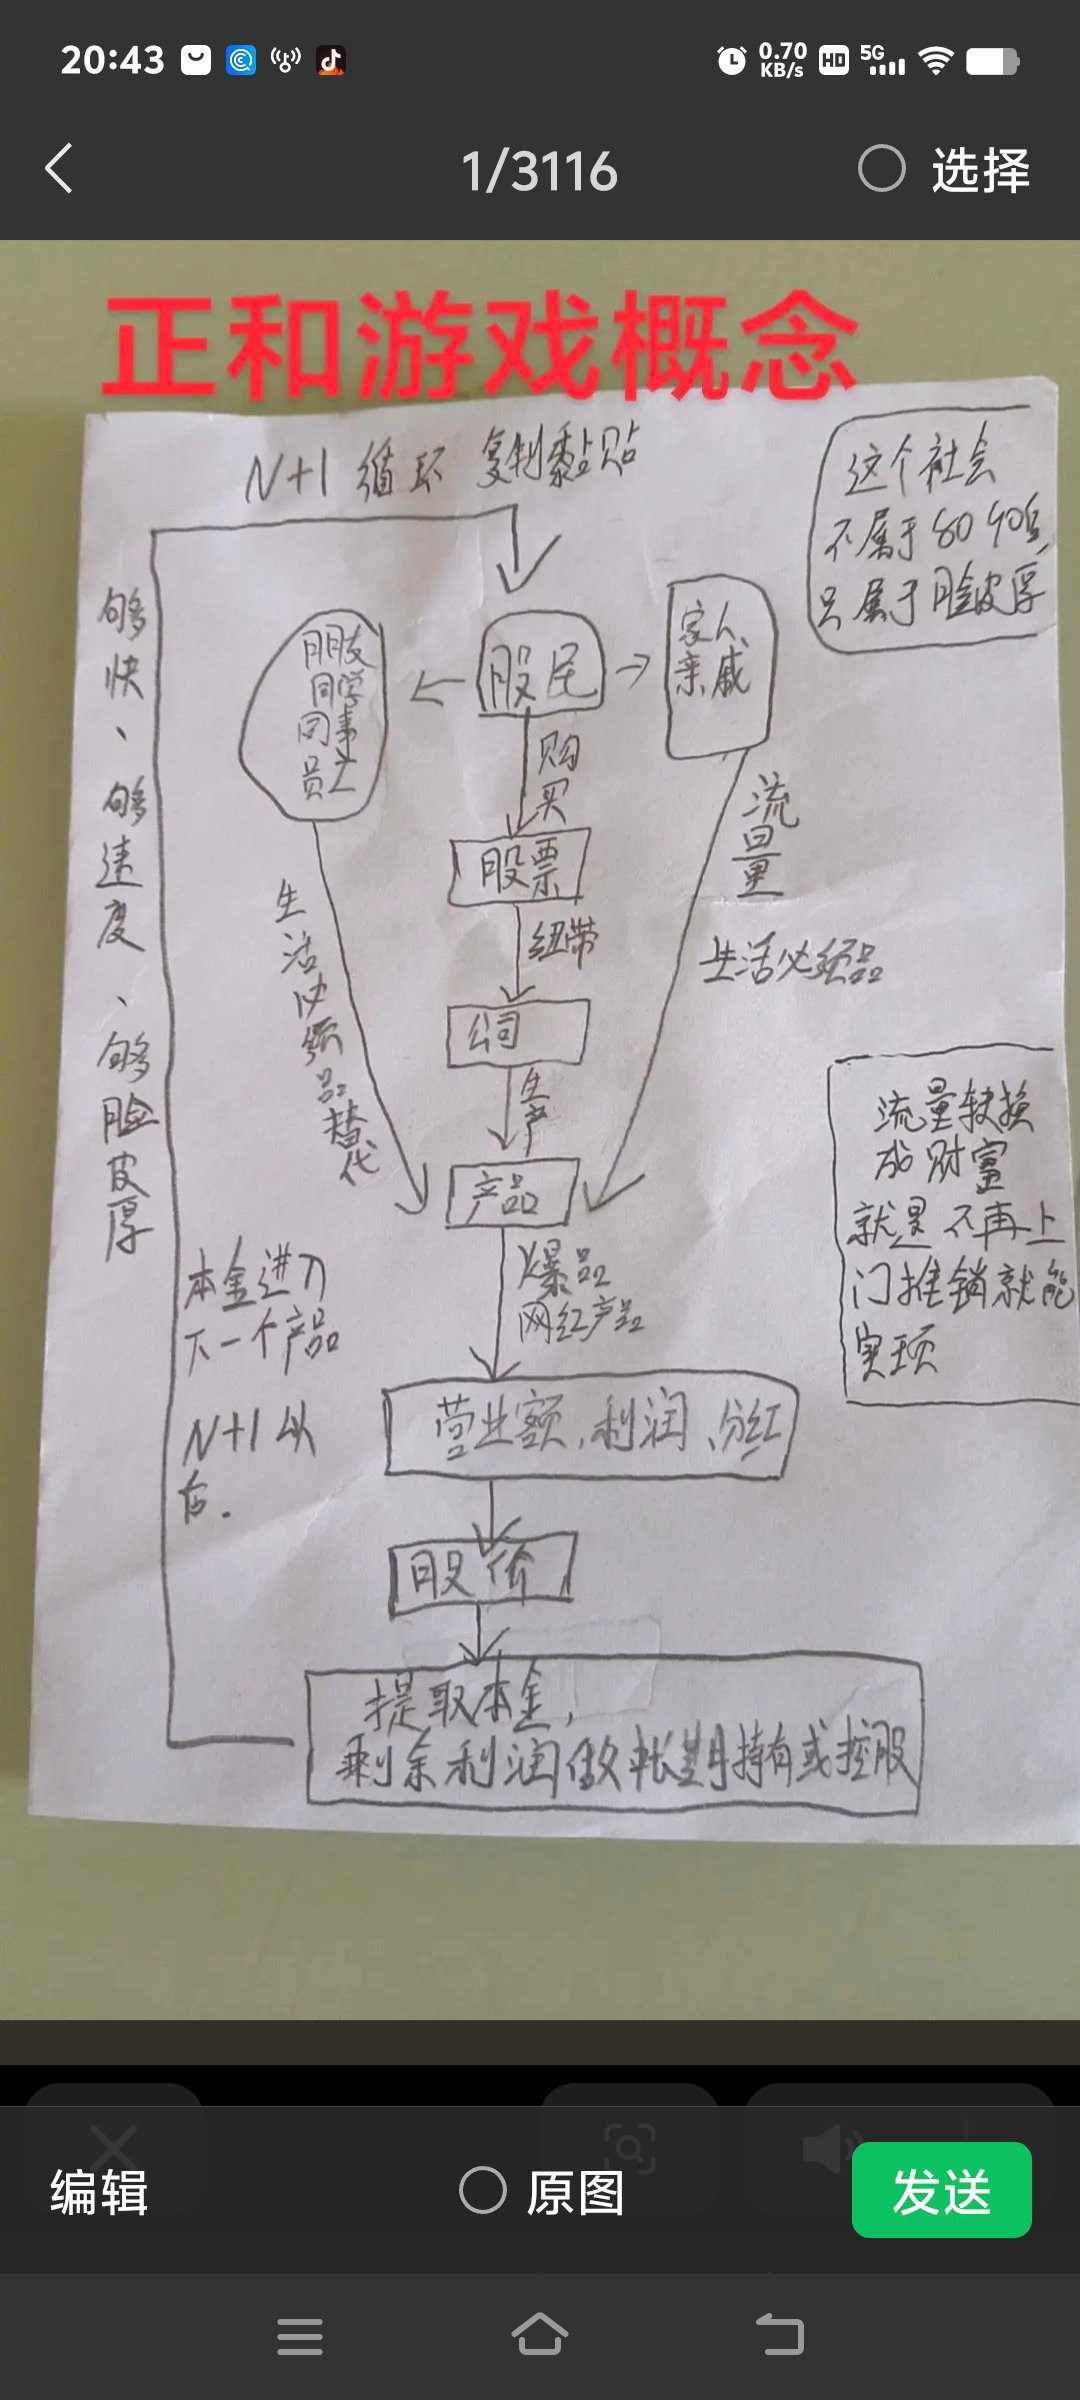 20:43
0.70
KB/s
HD
5G
1/3116
选择
正和游戏概念
N+1 循环 复制黏贴
这个社会
不属于80 90后,
只属于脸皮厚
够快、够速度、够脸皮厚
朋友
同学
同事
员工
股民
家人、
亲戚
购买
流量
股票
纽带
生活必须品替代
生活必须品
公司
生产
产品
流量转换
成财富
就是不再上
门推销就能
实现
本金进入
下一个产品
爆品
网红产品
N+1 以
后.
营业额,利润、分红
股价
提取本金,
剩余利润做长期持有或控股
编辑
原图
发送